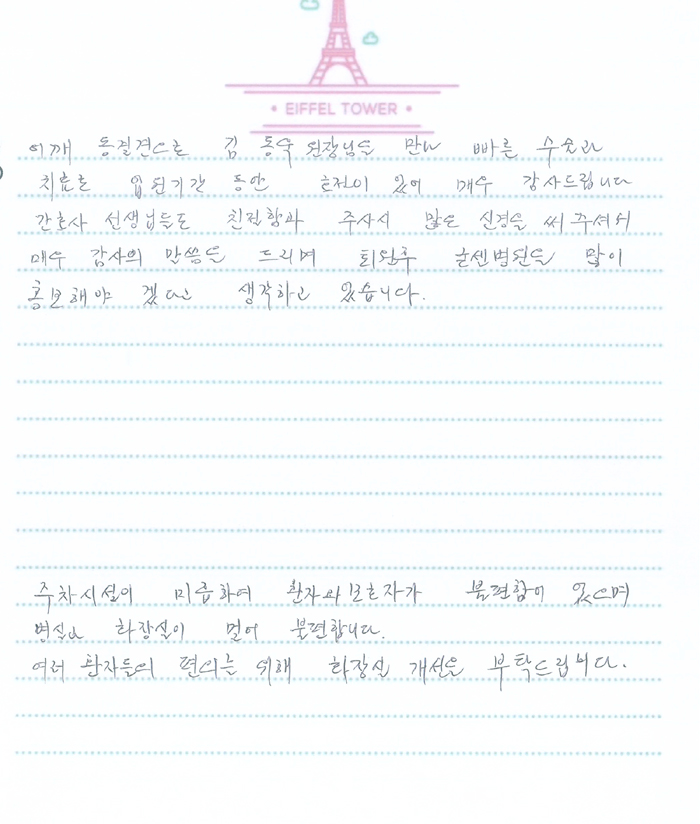 EIFFEL TOWER
어깨 동결견으로 김 동욱 원장님을 만나 빠른 수술과
치료로 입원기간 동안 호전이 있어 매우 감사드립니다
간호사 선생님들도 친절함과 주사시 많은 신경을 써 주셔서
매우 감사의 말씀을 드리며 퇴원후 병원을 많이
홍보해야 겠다고 생각하고 있습니다.
주차시설이 미흡하여 환자와보호자가 불편함이 있으며
병실과 화장실이 멀어 불편합니다.
여러 환자들의 편의를 위해 화장실 개선을 부탁드립니다.